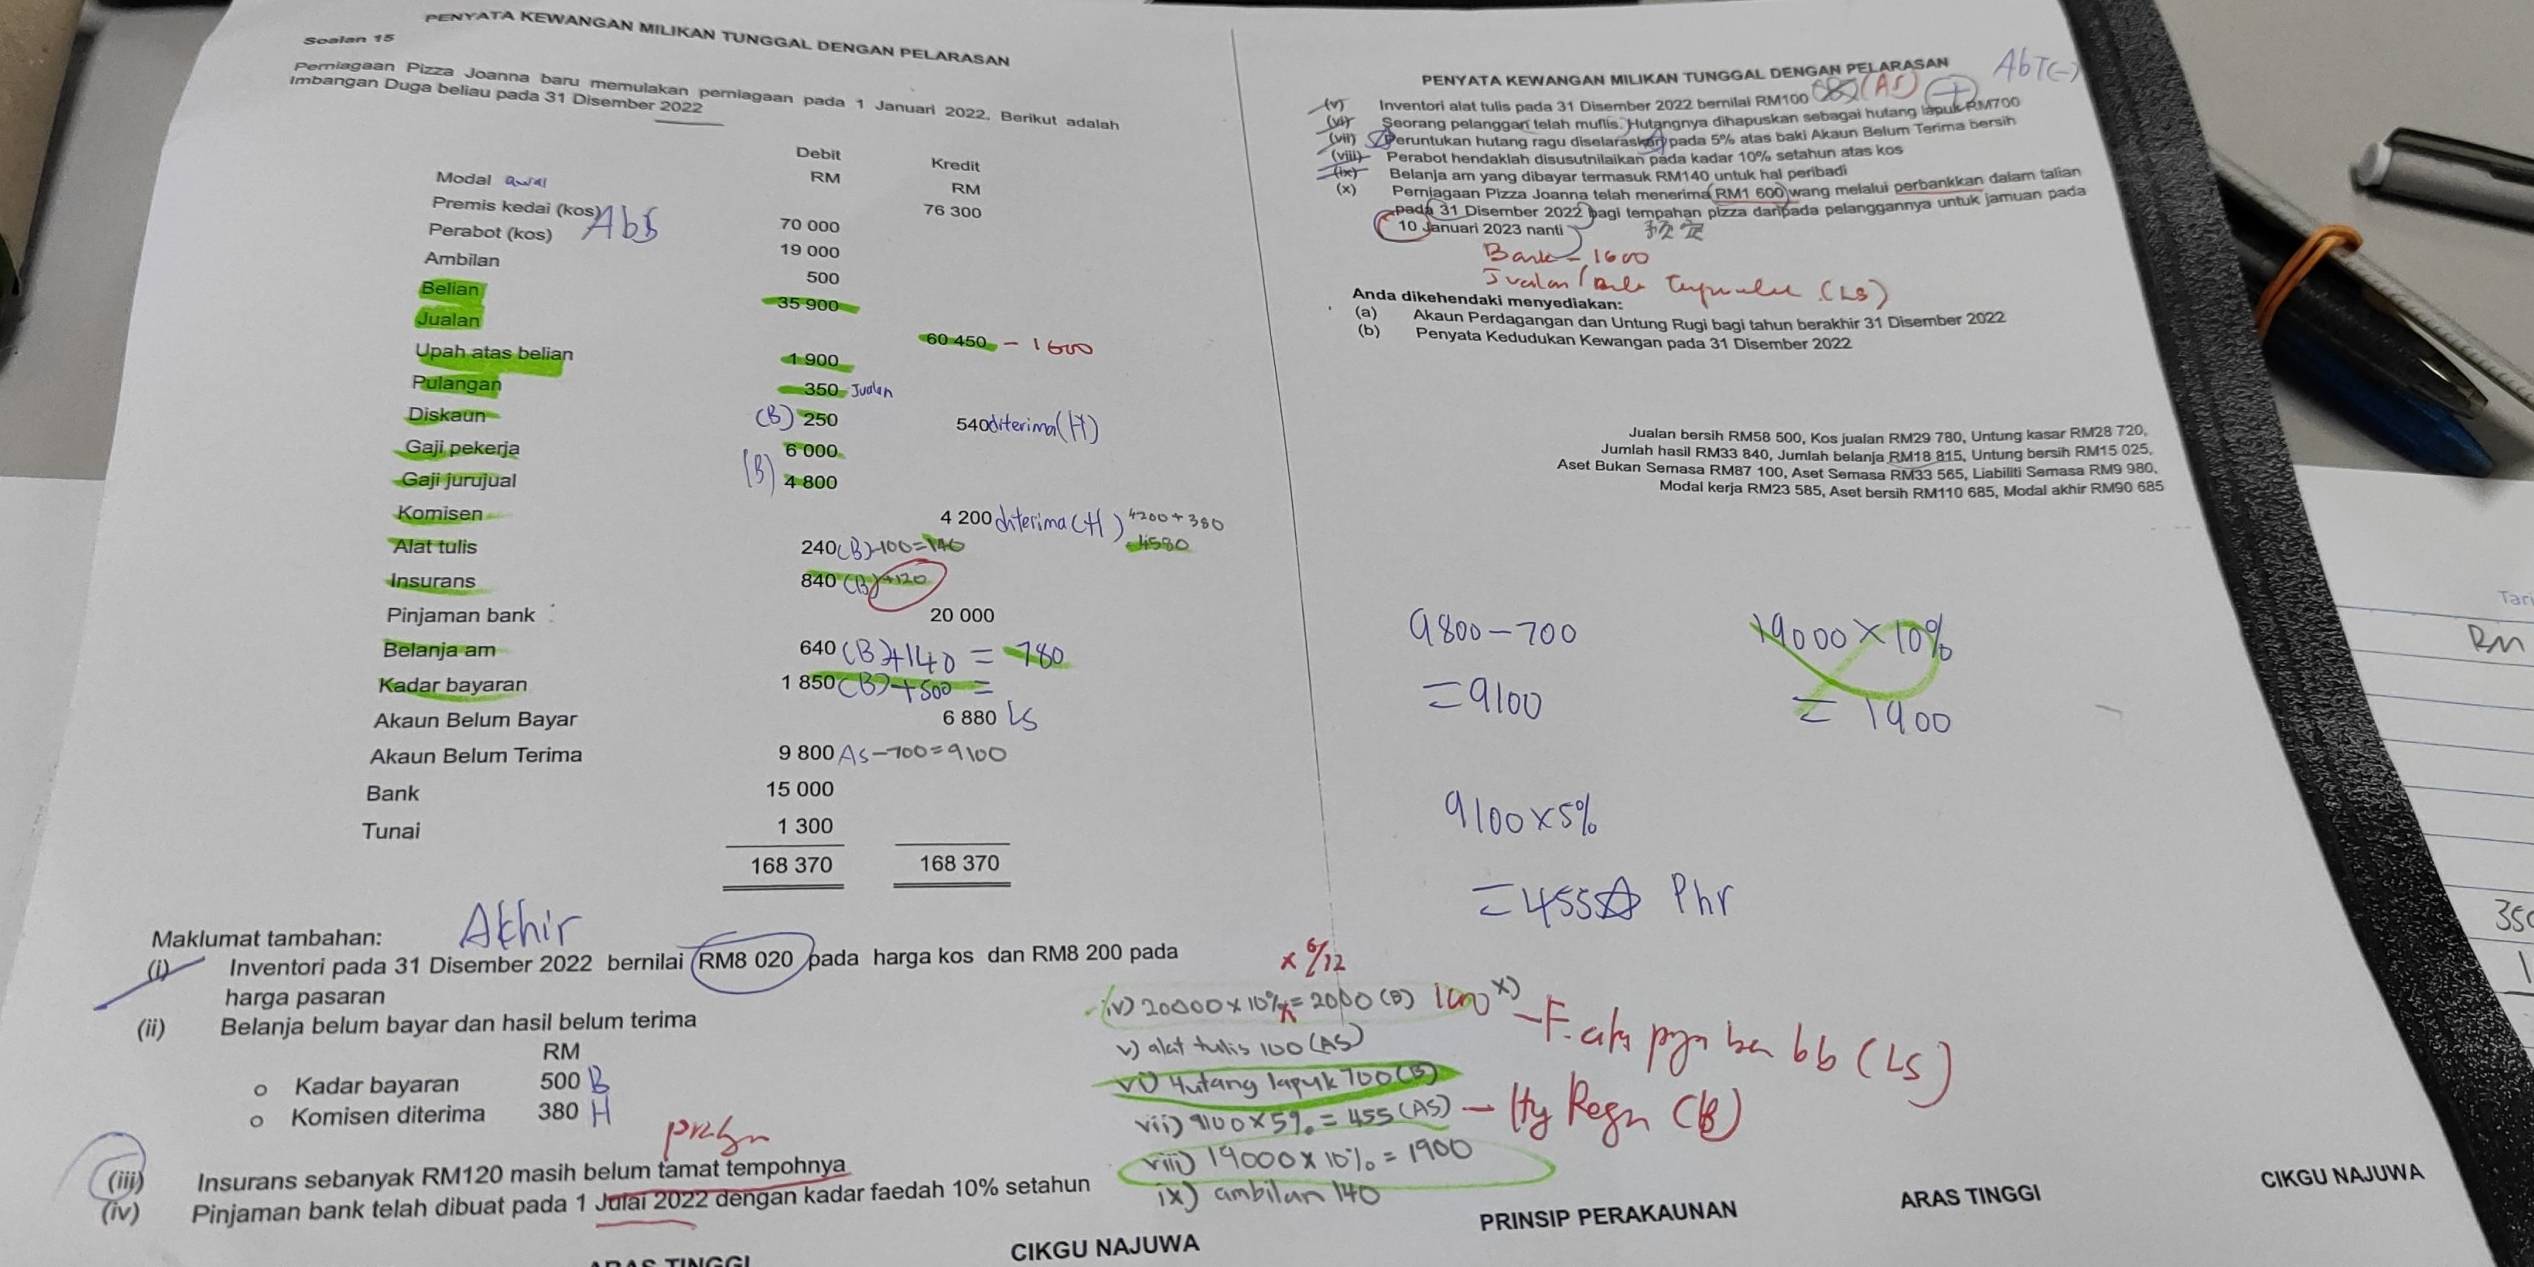 PENYATA KEWANGAN MILIKAN TUNGGAL DENGAN PELARASAN
Soalan 15
Perniagaan Pizza Joanna baru memulakan perniagaan pada 1 Januari 2022. Berikut adalah
Imbangan Duga beliau pada 31 Disember 2022
Debit Kredit
RM RM
Modal awal 76 300
Premis kedai (kos) AbS 70 000
Perabot (kos) 19 000
Ambilan 500
Belian 35 900
Jualan 60 450 - 1600
Upah atas belian 1 900
Pulangan 350 Jualan
Diskaun (B) 250 540 diterima (H)
Gaji pekerja 6 000
Gaji jurujual (B) 4 800
Komisen 4 200 diterima (H) 4200 + 380
4580
Alat tulis 240 (B) -100 = 140
Insurans 840 (B) +120
Pinjaman bank 20 000
Belanja am 640 (B) +140 = 780
Kadar bayaran 1 850 (B) +500 =
Akaun Belum Bayar 6 880 LS
Akaun Belum Terima 9 800 AS -700 = 9100
Bank 15 000
Tunai 1 300
168 370 168 370
Maklumat tambahan: Akhir
(i) Inventori pada 31 Disember 2022 bernilai RM8 020 pada harga kos dan RM8 200 pada
harga pasaran
(ii) Belanja belum bayar dan hasil belum terima
RM
o Kadar bayaran 500 B
o Komisen diterima 380 H
(iii) Insurans sebanyak RM120 masih belum tamat tempohnya
(iv) Pinjaman bank telah dibuat pada 1 Julai 2022 dengan kadar faedah 10% setahun
x 6/12
iv) 20000 x 10% = 2000 (B)
v) alat tulis 100 (AS)
vi) Hutang lapuk 700 (B)
vii) 9100 x 5% = 455 (AS)
viii) 19000 x 10% = 1900
ix) ambilan 140
CIKGU NAJUWA
PENYATA KEWANGAN MILIKAN TUNGGAL DENGAN PELARASAN
AbT (-)
(v) Inventori alat tulis pada 31 Disember 2022 bernilai RM100 (AS)
(vi) Seorang pelanggan telah muflis. Hutangnya dihapuskan sebagai hutang lapuk RM700
(vii) Peruntukan hutang ragu diselaraskan pada 5% atas baki Akaun Belum Terima bersih
(viii) Perabot hendaklah disusutnilaikan pada kadar 10% setahun atas kos
(ix) Belanja am yang dibayar termasuk RM140 untuk hal peribadi
(x) Perniagaan Pizza Joanna telah menerima RM1 600 wang melalui perbankkan dalam talian
pada 31 Disember 2022 bagi tempahan pizza daripada pelanggannya untuk jamuan pada
10 Januari 2023 nanti
预定
Bank - 1600
(LS)
Anda dikehendaki menyediakan:
(a) Akaun Perdagangan dan Untung Rugi bagi tahun berakhir 31 Disember 2022
(b) Penyata Kedudukan Kewangan pada 31 Disember 2022
Jualan bersih RM58 500, Kos jualan RM29 780, Untung kasar RM28 720,
Jumlah hasil RM33 840, Jumlah belanja RM18 815, Untung bersih RM15 025,
Aset Bukan Semasa RM87 100, Aset Semasa RM33 565, Liabiliti Semasa RM9 980,
Modal kerja RM23 585, Aset bersih RM110 685, Modal akhir RM90 685
9800 - 700
= 9100
19000 x 10%
= 1900
9100 x 5%
= 455 Phr
(LS)
PRINSIP PERAKAUNAN
ARAS TINGGI
CIKGU NAJUWA
RM